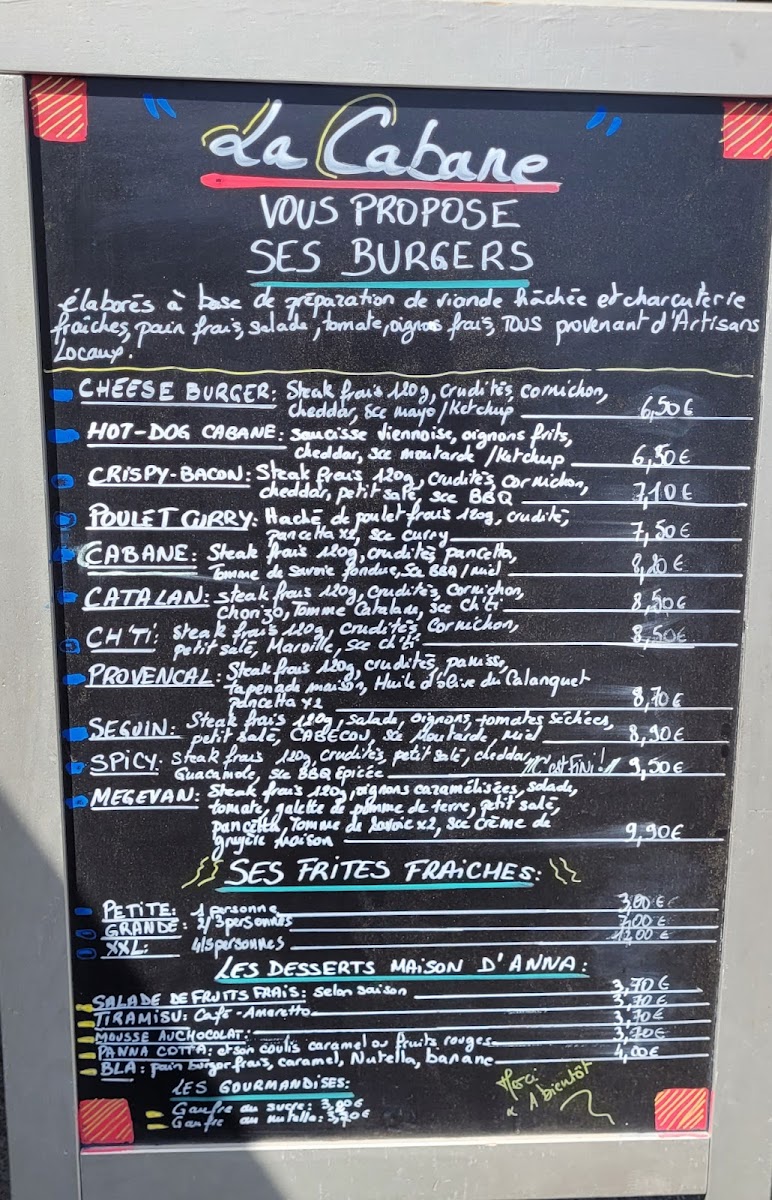 " La Cabane "
VOUS PROPOSE
SES BURGERS
élaborés à base de préparation de viande hâchée et charcuterie
fraîches, pain frais, salade, tomate, oignons frais, TOUS provenant d'Artisans
Locaux.
CHEESE BURGER: Steak frais 120g, crudités, cornichon,
cheddar, sce mayo/Ketchup 6,50€
HOT-DOG CABANE: saucisse viennoise, oignons frits,
cheddar, sce moutarde/Ketchup 6,50€
CRISPY-BACON: Steak frais 120g, crudités, cornichon,
cheddar, petit salé, sce BBQ 7,10€
POULET CURRY: Haché de poulet frais 120g, crudité,
pancetta x2, sce curry 7,50€
CABANE: Steak frais 120g, crudités, pancetta,
Tomme de Savoie fondue, Sce BBQ/miel
CATALAN: steak frais 120g, crudités, cornichon,
Chorizo, Tomme Catalane, sce ch'ti 8,50€
CH'TI: Steak frais 120g, crudités, cornichon,
petit salé, Maroille, sce ch'ti 8,50€
PROVENCAL: Steak frais 120g, crudités, panisse,
tapenade maison, Huile d'olive du Calanquet
pancetta x2 8,70€
SEGUIN: Steak frais 120g, salade, oignons, tomates séchées,
petit salé, CABECOU, sce Moutarde, Miel 8,90€
SPICY: Steak frais 120g, crudités, petit salé, cheddar, C'est Fini!
Guacamole, sce BBQ épicée 9,50€
MEGEVAN: Steak frais 120g, oignons caramélisées, salade,
tomate, galette de pomme de terre, petit salé,
pancetta, Tomme de Savoie x2, sce crème de
gruyère maison 9,90€
SES FRITES FRAICHES:
PETITE: 1 personne
GRANDE: 2/3 personnes 7,00€
XXL: 4/5 personnes 12,00€
LES DESSERTS MAISON D'ANNA:
SALADE DE FRUITS FRAIS: selon saison 3,70€
TIRAMISU: Café-Amaretto 3,70€
MOUSSE AU CHOCOLAT: 3,70€
PANNA COTTA: et son coulis caramel ou fruits rouges 3,70€
BLA: pain burger frais, caramel, Nutella, banane 4,00€
LES GOURMANDISES:
Gaufre au sucre:
Gaufre au nutella:
Merci
A bientôt